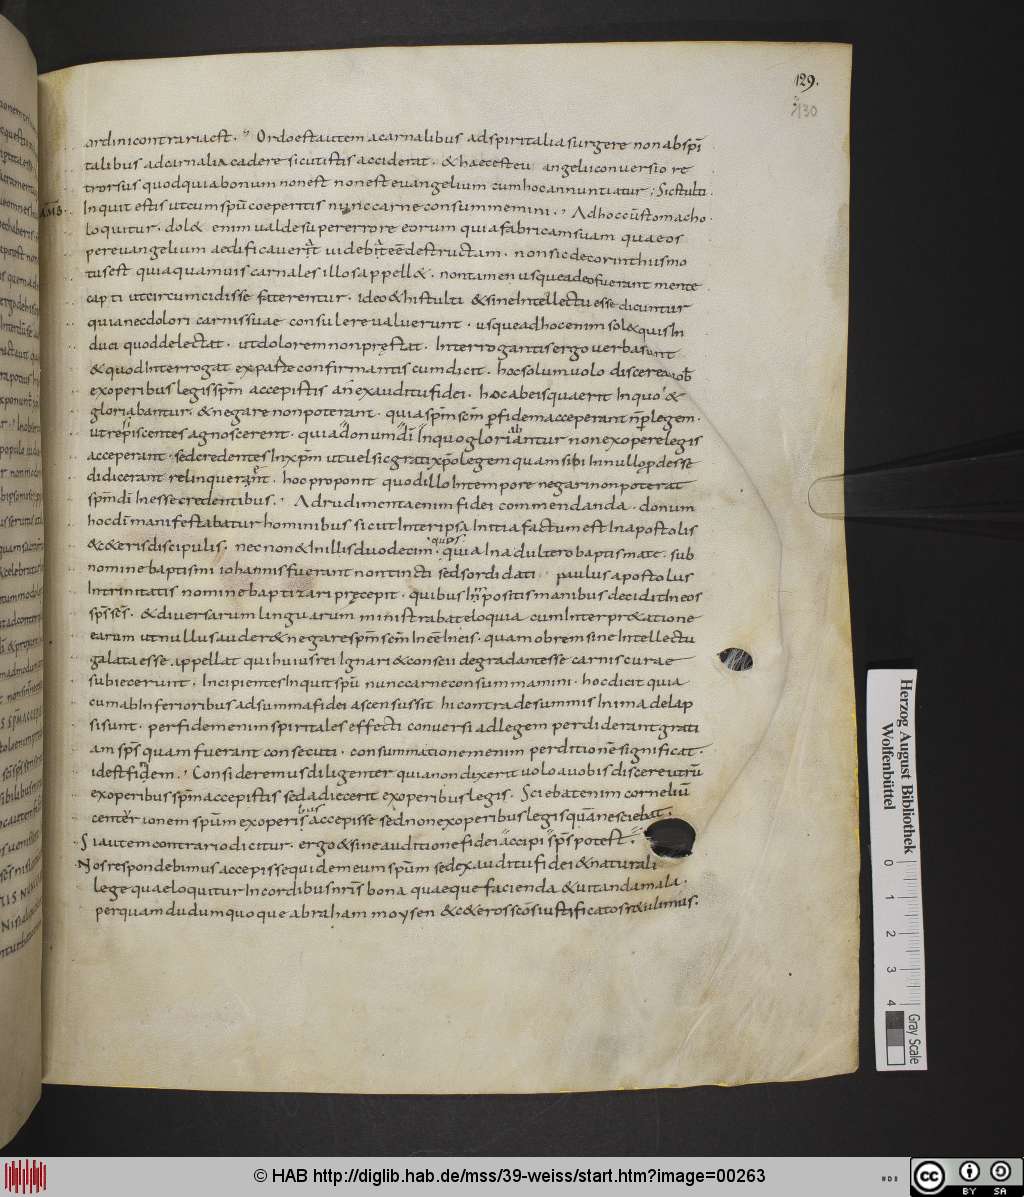 129.
130
ordini contraria est. Ordo est autem a carnalibus ad spiritalia surgere non ab spiri
talibus ad carnalia cadere sicut istis acciderat. & haec est eu angelii conuersio re
trorsus quod quia bonum non est non est euangelium cum hoc annuntiatur; Sic stulti
AMB. Inquit estis ut cum spu coeperitis nunc carne consummemini. Ad hoc cu stomacho
loquitur. dol& enim ualde super errore eorum quia fabricam suam quae os
per euangelium aedificauerat uidebat ee destructam. non sic de corinthus mo
tus est quia quamuis carnales illos appell&. non tamen usque adeo fuerant mente
capti ut circumcidisse faterentur. ideo & hi stulti & sine intellectu esse dicuntur
quia nec dolori carnis suae consulere ualuerunt. usque ad hoc enim sol& quis in
duci quod delectat. ut dolorem non prestat. Interrogantis ergo uerba sunt
& quod Interrogat ex parte confirmantis cum dicit. hoc solum uolo discere a uob
ex operibus legis spm accepistis an ex auditu fidei. hoc ab eis quaerit In quo &
gloriabantur. & negare non poterant. quia spm scm per fidem acceperant n p legem.
ut repiscentes agnoscerent. quia donum di In quo gloriantur non ex opere legis
acceperant. sed credentes In xpm ut uel sic grati xpo legem quam sibi In nullo p desse
didicerant relinquerant. hoc proponit quod illo In tempore negari non poterat
spm di Inesse credentibus. Ad rudimenta enim fidei commendanda. donum
hoc di manifestabatur hominibus sicut In teripsa Initia factum est In apostolis
& c&eris discipulis. nec non & In illis duodecim quibus. quia In adultero baptismate. sub
nomine baptismi iohannis fuerant non tincti sed sordidati paulus apostolus
In trinitatis nomine baptizari precepit. quibus In positis manibus decidit In eos
sps ses. & diuersarum linguarum ministrabat eloquia cum Interpr&atione
earum ut nullus auder& negare spm scm Inee In eis. quam ob rem sine Intellectu
galatae esse appellat qui huius rei Ignari & conscii degradantes se carnis curae
subiecerunt. Incipientes Inquit spu nunc carne consummamini. hoc dicit quia
cum ab Inferioribus ad summa fidei ascensus sit hi contra de summis In ima delap
si sunt. per fidem enim spiritales effecti conuersi ad legem perdiderant grati
am sps quam fuerant consecuti. consummationem enim perditione significat.
id est finem. Consideremus diligenter quia non dixerit uolo a uobis discere utru
ex operibus spm accepistis sed adiecerit ex operibus legis. Sciebat enim corneliu
centerionem spum ex operibus accepisse sed non ex operibus legis quam nesciebat.
Si autem contrario dicitur. ergo & sine auditione fidei accipi sps potest.
Nos respondebimus accepisse quidem eum spum sed ex auditu fidei & naturali
lege quae loquitur In cordibus nris bona quaeque facienda & uitanda mala.
per quam dudum quoque abraham moysen & c&eros scos iustificatos r&ulimus.
Herzog August Bibliothek
Wolfenbüttel
0 1 2 3 4
Gray Scale
© HAB http://diglib.hab.de/mss/39-weiss/start.htm?image=00263
cc BY SA